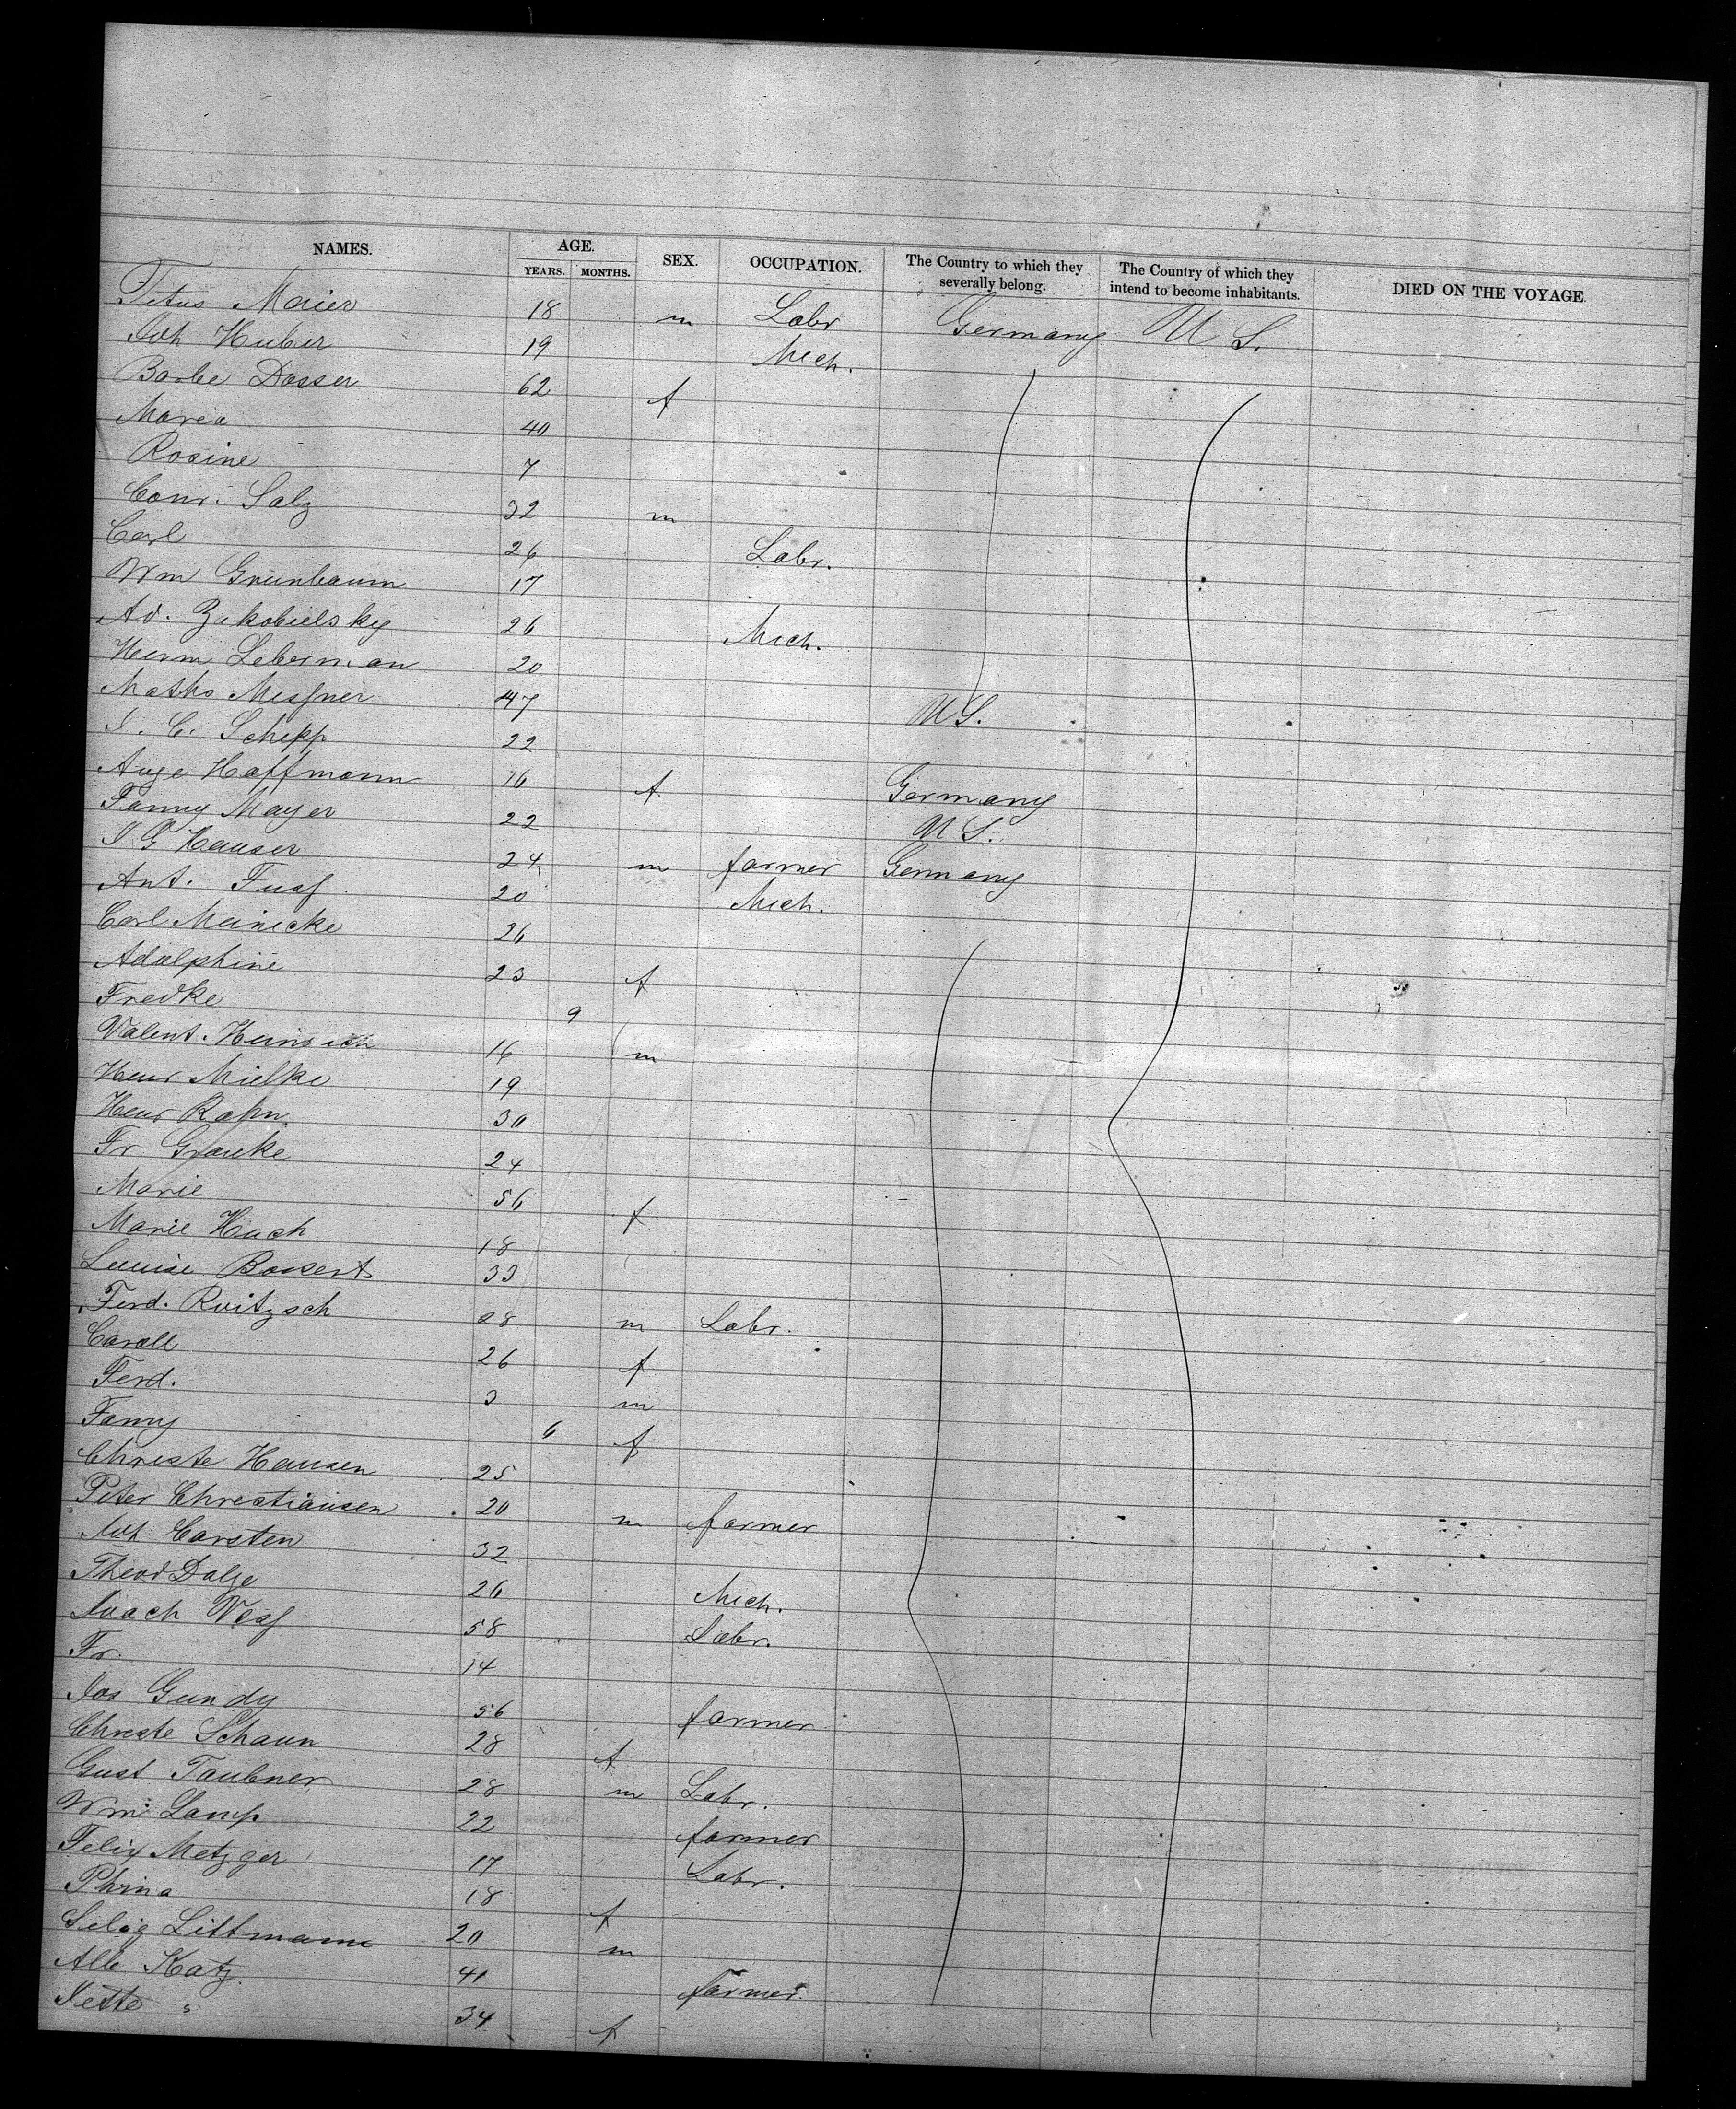 NAMES. AGE. SEX. OCCUPATION. The Country to which they severally belong. The Country of which they intend to become inhabitants. DIED ON THE VOYAGE.
YEARS. MONTHS.
Titus Maier 18 m Labr Germany U S.
Joh Huber 19 Mech.
Barbe Dosser 62 f
Maria 40
Rosine 7
Conr. Salz 32 m
Carl 26 Labr.
Wm Grunbaum 17
Ad. Zakobielsky 26 Mech.
Herm Leberman 20
Maths Messner 47 U S.
J. C. Schepp 22
Auge Haffmann 16 f Germany
Fanny Mayer 22 U S.
J G Hauser 24 m farmer Germany
Ant. Fuss 20 Mech.
Carl Meinicke 26
Adolphine 23 f
Fredke 9
Valent. Heinrich 16 m
Henr Mielke 19
Henr Rahn 30
Fr Graucke 24
Marie 56 f
Marie Huch 18
Louise Bossert 33
Ferd. Roitzsch 28 m Labr.
Caroll 26 f
Ferd. 3 m
Fanny 6 f
Christe Hansen 25
Peter Christiansen 20 m farmer
Joh Carsten 32
Theod Dalge 26 Mech.
Joach Voss 58 Labr.
Fr. 14
Jos Gundy 56 farmer
Christe Schaun 28 f
Gust Taubner 28 m Labr.
Wm Lamp 22 farmer
Felix Metzger 17 Labr.
Phina 18 f
Selig Littmann 20 m
Alb Katz. 41 farmer.
Jette " 34 f